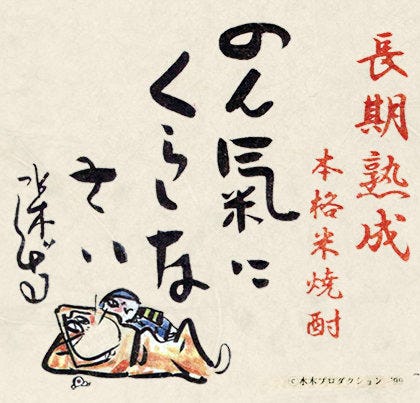 長期熟成
本格米焼酎
のん氣に
くらしな
さい
水木しげる
© 水木プロダクション '99